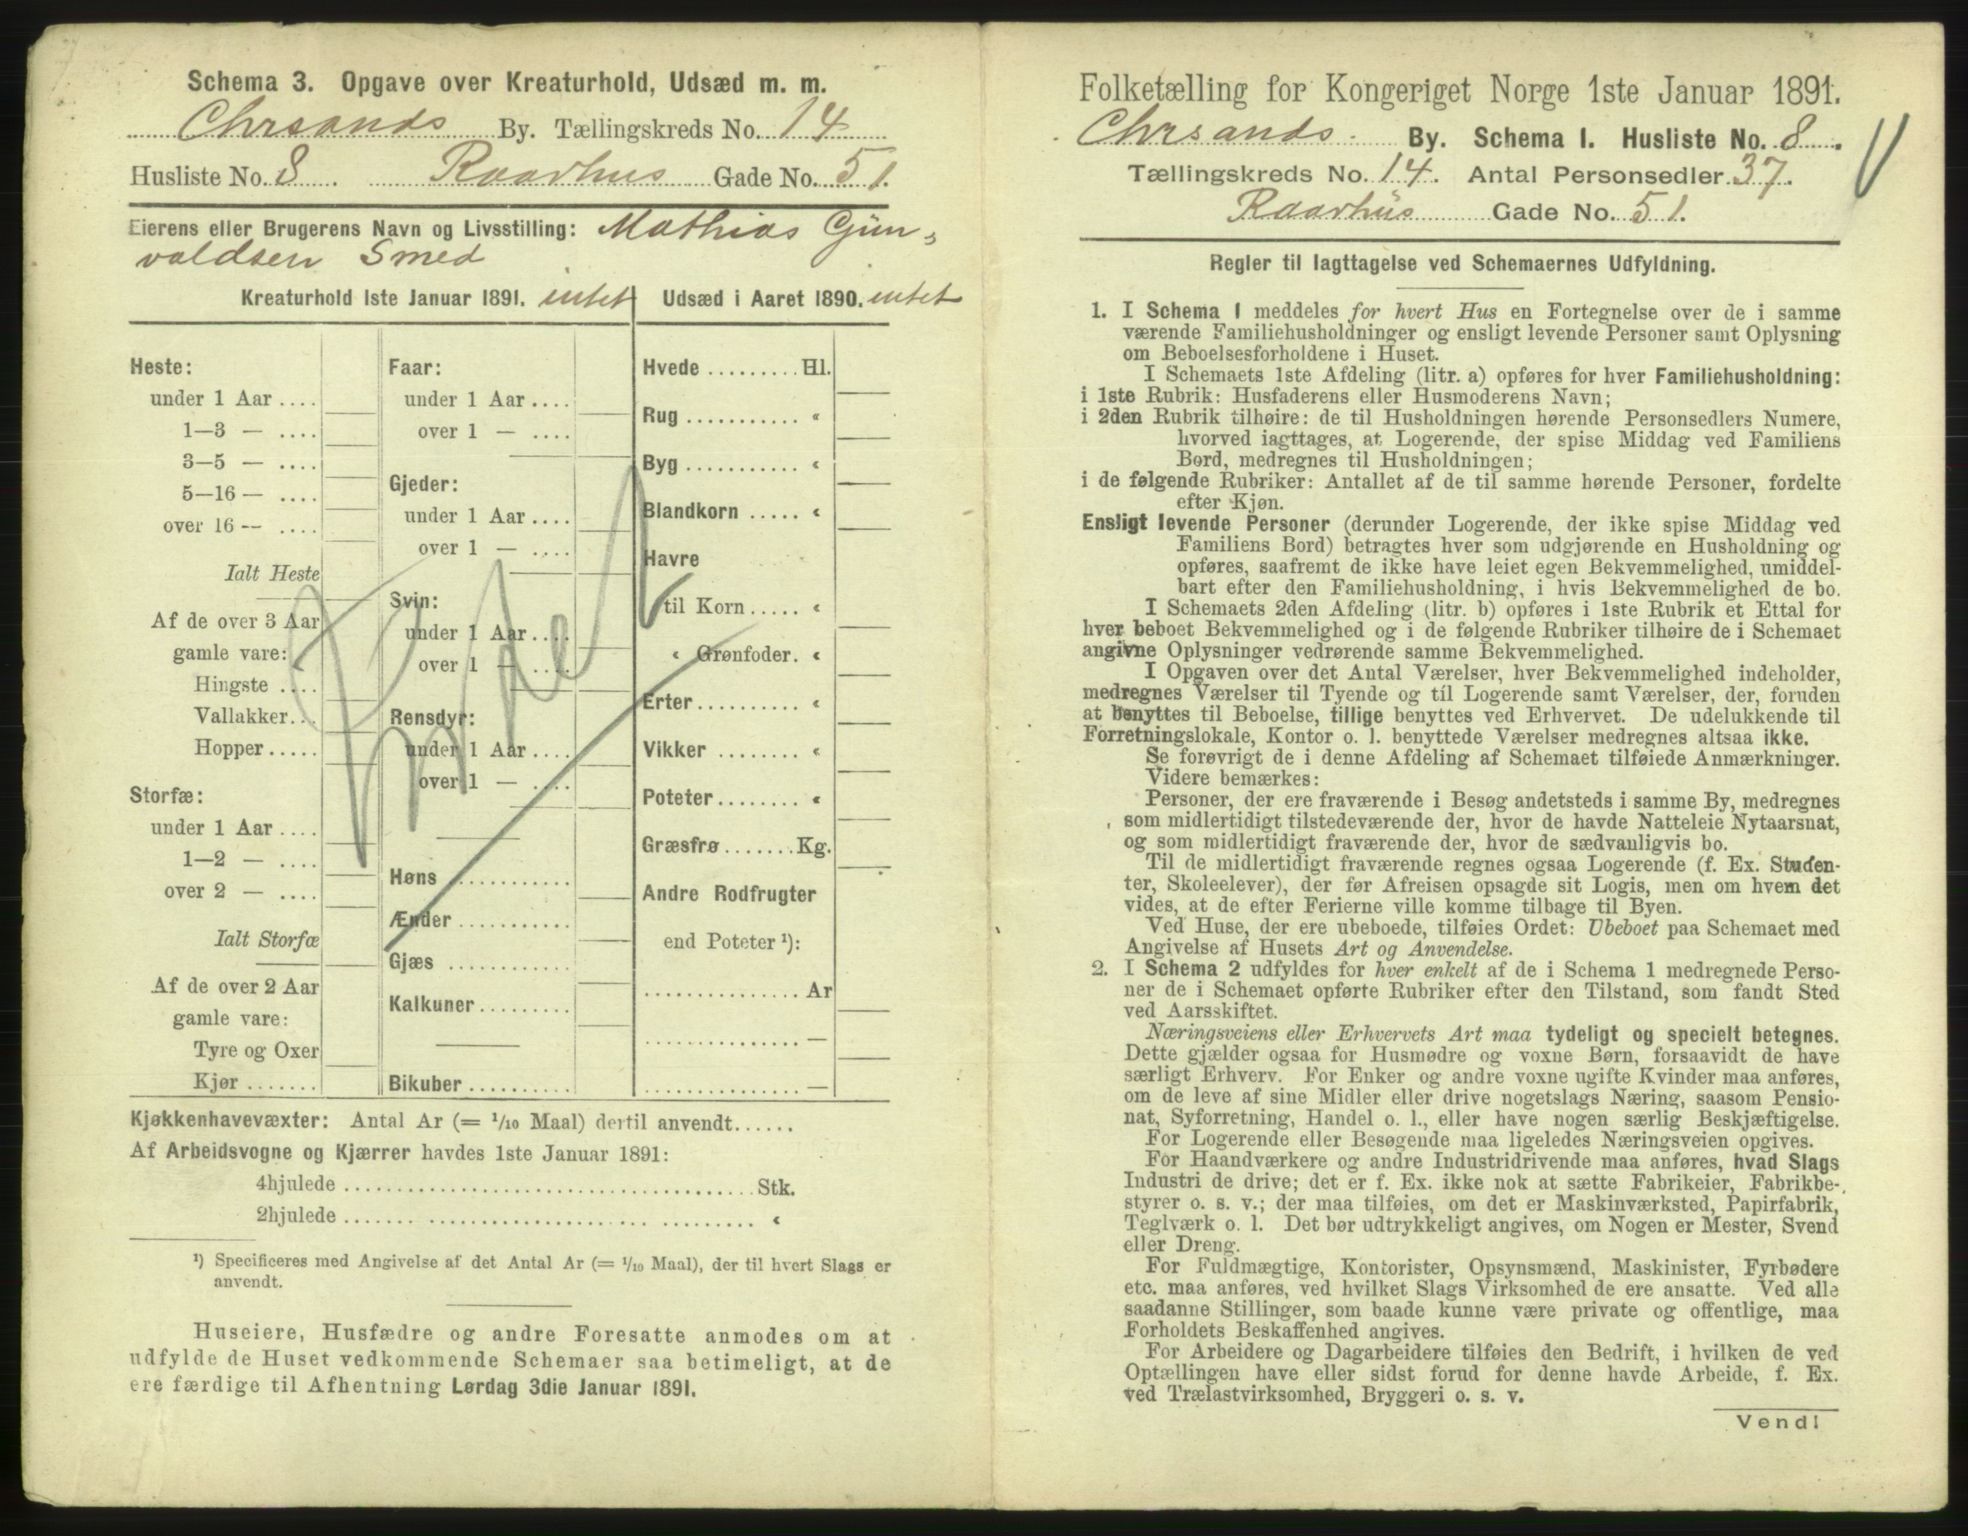 Schema 3. Opgave over Kreaturhold, Udsæd m. m.
Chrsands By. Tællingskreds No. 14
Husliste No. 8. Raadhus Gade No. 51.
Eierens eller Brugerens Navn og Livsstilling: Mathias Gün-
valdsen Smed
Kreaturhold 1ste Januar 1891. intet
Heste:
under 1 Aar ....
1—3 — ....
3—5 — ....
5—16 — ....
over 16 — ....
Ialt Heste
Af de over 3 Aar
gamle vare:
Hingste ....
Vallakker...
Hopper.....
Storfæ:
under 1 Aar ....
1—2 — ....
over 2 — ....
Ialt Storfæ
Af de over 2 Aar
gamle vare:
Tyre og Oxer
Kjør .......
Faar:
under 1 Aar ....
over 1 — ....
Gjeder:
under 1 Aar ....
over 1 — ....
Svin:
under 1 Aar ....
over 1 — ....
Rensdyr:
under 1 Aar ....
over 1 — ....
Høns ...........
Ænder ..........
Gjæs ...........
Kalkuner.........
Bikuber ..........
Udsæd i Aaret 1890. intet
Hvede ......... Hl.
Rug ........... «
Byg ........... «
Blandkorn ..... «
Havre
til Korn ..... «
« Grønfoder. «
Erter .......... «
Vikker ......... «
Poteter ........ «
Græsfrø ....... Kg.
Andre Rodfrugter
end Poteter ¹):
............... Ar
............... —
............... —
Kjøkkenhavevæxter: Antal Ar (= 1/10 Maal) dertil anvendt......
Af Arbeidsvogne og Kjærrer havdes 1ste Januar 1891:
4hjulede ....................................... Stk.
2hjulede ....................................... «
¹) Specificeres med Angivelse af det Antal Ar (= 1/10 Maal), der til hvert Slags er
anvendt.
Huseiere, Husfædre og andre Foresatte anmodes om at
udfylde de Huset vedkommende Schemaer saa betimeligt, at de
ere færdige til Afhentning Lørdag 3die Januar 1891.
Folketælling for Kongeriget Norge 1ste Januar 1891.
Chrsands. By. Schema 1. Husliste No. 8.
Tællingskreds No. 14. Antal Personsedler 37.
Raadhüs Gade No. 51.
Regler til Iagttagelse ved Schemaernes Udfyldning.
1. I Schema 1 meddeles for hvert Hus en Fortegnelse over de i samme
værende Familiehusholdninger og ensligt levende Personer samt Oplysning
om Beboelsesforholdene i Huset.
I Schemaets 1ste Afdeling (litr. a) opføres for hver Familiehusholdning:
i 1ste Rubrik: Husfaderens eller Husmoderens Navn;
i 2den Rubrik tilhøire: de til Husholdningen hørende Personsedlers Numere,
hvorved iagttages, at Logerende, der spise Middag ved Familiens
Bord, medregnes til Husholdningen;
i de følgende Rubriker: Antallet af de til samme hørende Personer, fordelte
efter Kjøn.
Ensligt levende Personer (derunder Logerende, der ikke spise Middag ved
Familiens Bord) betragtes hver som udgjørende en Husholdning og
opføres, saafremt de ikke have leiet egen Bekvemmelighed, umiddel-
bart efter den Familiehusholdning, i hvis Bekvemmelighed de bo.
I Schemaets 2den Afdeling (litr. b) opføres i 1ste Rubrik et Ettal for
hver beboet Bekvemmelighed og i de følgende Rubriker tilhøire de i Schemaet
angivne Oplysninger vedrørende samme Bekvemmelighed.
I Opgaven over det Antal Værelser, hver Bekvemmelighed indeholder,
medregnes Værelser til Tyende og til Logerende samt Værelser, der, foruden
at benyttes til Beboelse, tillige benyttes ved Erhvervet. De udelukkende til
Forretningslokale, Kontor o. l. benyttede Værelser medregnes altsaa ikke.
Se forøvrigt de i denne Afdeling af Schemaet tilføiede Anmærkninger.
Videre bemærkes:
Personer, der ere fraværende i Besøg andetsteds i samme By, medregnes
som midlertidigt tilstedeværende der, hvor de havde Natteleie Nytaarsnat,
og som midlertidigt fraværende der, hvor de sædvanligvis bo.
Til de midlertidigt fraværende regnes ogsaa Logerende (f. Ex. Studen-
ter, Skoleelever), der før Afreisen opsagde sit Logis, men om hvem det
vides, at de efter Ferierne ville komme tilbage til Byen.
Ved Huse, der ere ubeboede, tilføies Ordet: Ubeboet paa Schemaet med
Angivelse af Husets Art og Anvendelse.
2. I Schema 2 udfyldes for hver enkelt af de i Schema 1 medregnede Perso-
ner de i Schemaet opførte Rubriker efter den Tilstand, som fandt Sted
ved Aarsskiftet.
Næringsveiens eller Erhvervets Art maa tydeligt og specielt betegnes.
Dette gjælder ogsaa for Husmødre og voxne Børn, forsaavidt de have
særligt Erhverv. For Enker og andre voxne ugifte Kvinder maa anføres,
om de leve af sine Midler eller drive nogetslags Næring, saasom Pensio-
nat, Syforretning, Handel o. l., eller have nogen særlig Beskjæftigelse.
For Logerende eller Besøgende maa ligeledes Næringsveien opgives.
For Haandværkere og andre Industridrivende maa anføres, hvad Slags
Industri de drive; det er f. Ex. ikke nok at sætte Fabrikeier, Fabrikbe-
styrer o. s. v.; der maa tilføies, om det er Maskinværksted, Papirfabrik,
Teglværk o. l. Det bør udtrykkeligt angives, om Nogen er Mester, Svend
eller Dreng.
For Fuldmægtige, Kontorister, Opsynsmænd, Maskinister, Fyrbødere
etc. maa anføres, ved hvilket Slags Virksomhed de ere ansatte. Ved alle
saadanne Stillinger, som baade kunne være private og offentlige, maa
Forholdets Beskaffenhed angives.
For Arbeidere og Dagarbeidere tilføies den Bedrift, i hvilken de ved
Optællingen have eller sidst forud for denne havde Arbeide, f. Ex.
ved Trælastvirksomhed, Bryggeri o. s. v.
Vend!